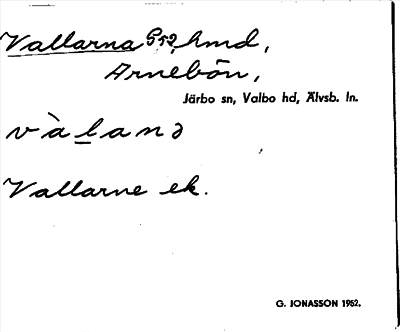 Vallarna G52, hmd,
Arnebön,
Järbo sn, Valbo hd, Älvsb. ln.
vàlanə
Vallarne ek.
G. JONASSON 1962.